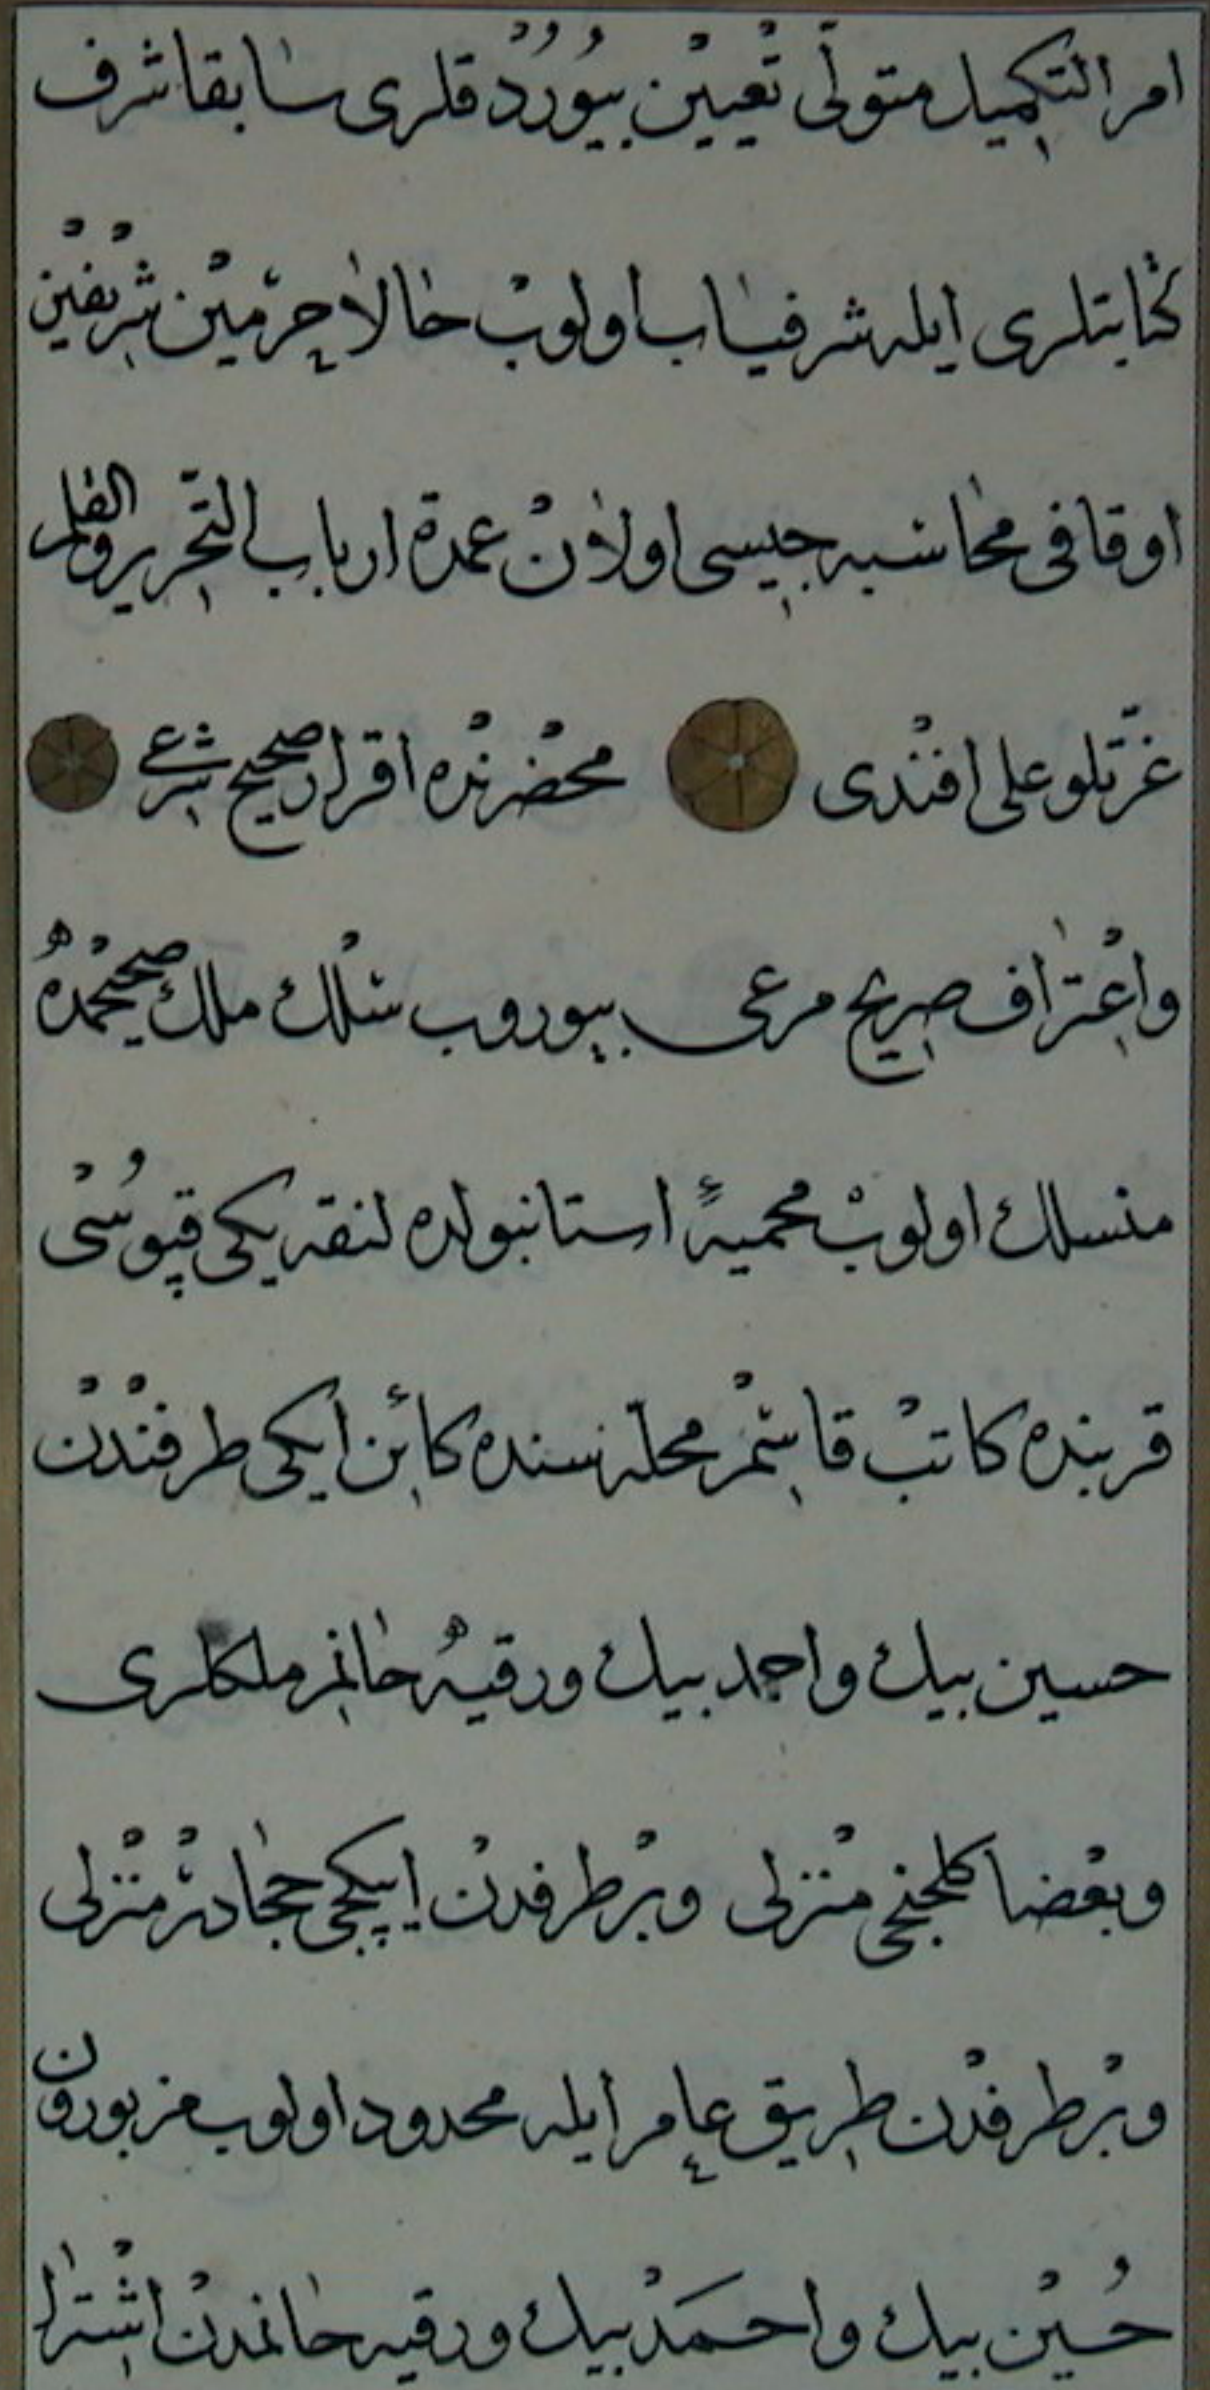 امر التكميل متولّى تعيين بيوردقلرى سابقا شرف
كتابتلرى ايله شرفياب اولوب حالا حرمين شريفين
اوقافى محاسبه جيسى اولان عمدة ارباب التحرير والقلم
عزّتلو على افندى محضرنده اقرار صحيح شرعى
واعتراف صريح مرعى بيوروب سلك ملك صحيحمده
منسلك اولوب محميۀ استانبولده لنقه يكى قپوسى
قربنده كاتب قاسم محلّه سنده كائن ايكى طرفندن
حسين بيك واحمد بيك ورقيه خانم ملكلرى
وبعضا كلخنجى منزلى وبر طرفدن ايپكجى منزلى
وبر طرفدن طريق عام ايله محدود اولوب مزبورون
حُسين بيك واحمَد بيك ورقيه خانمدن اشترا